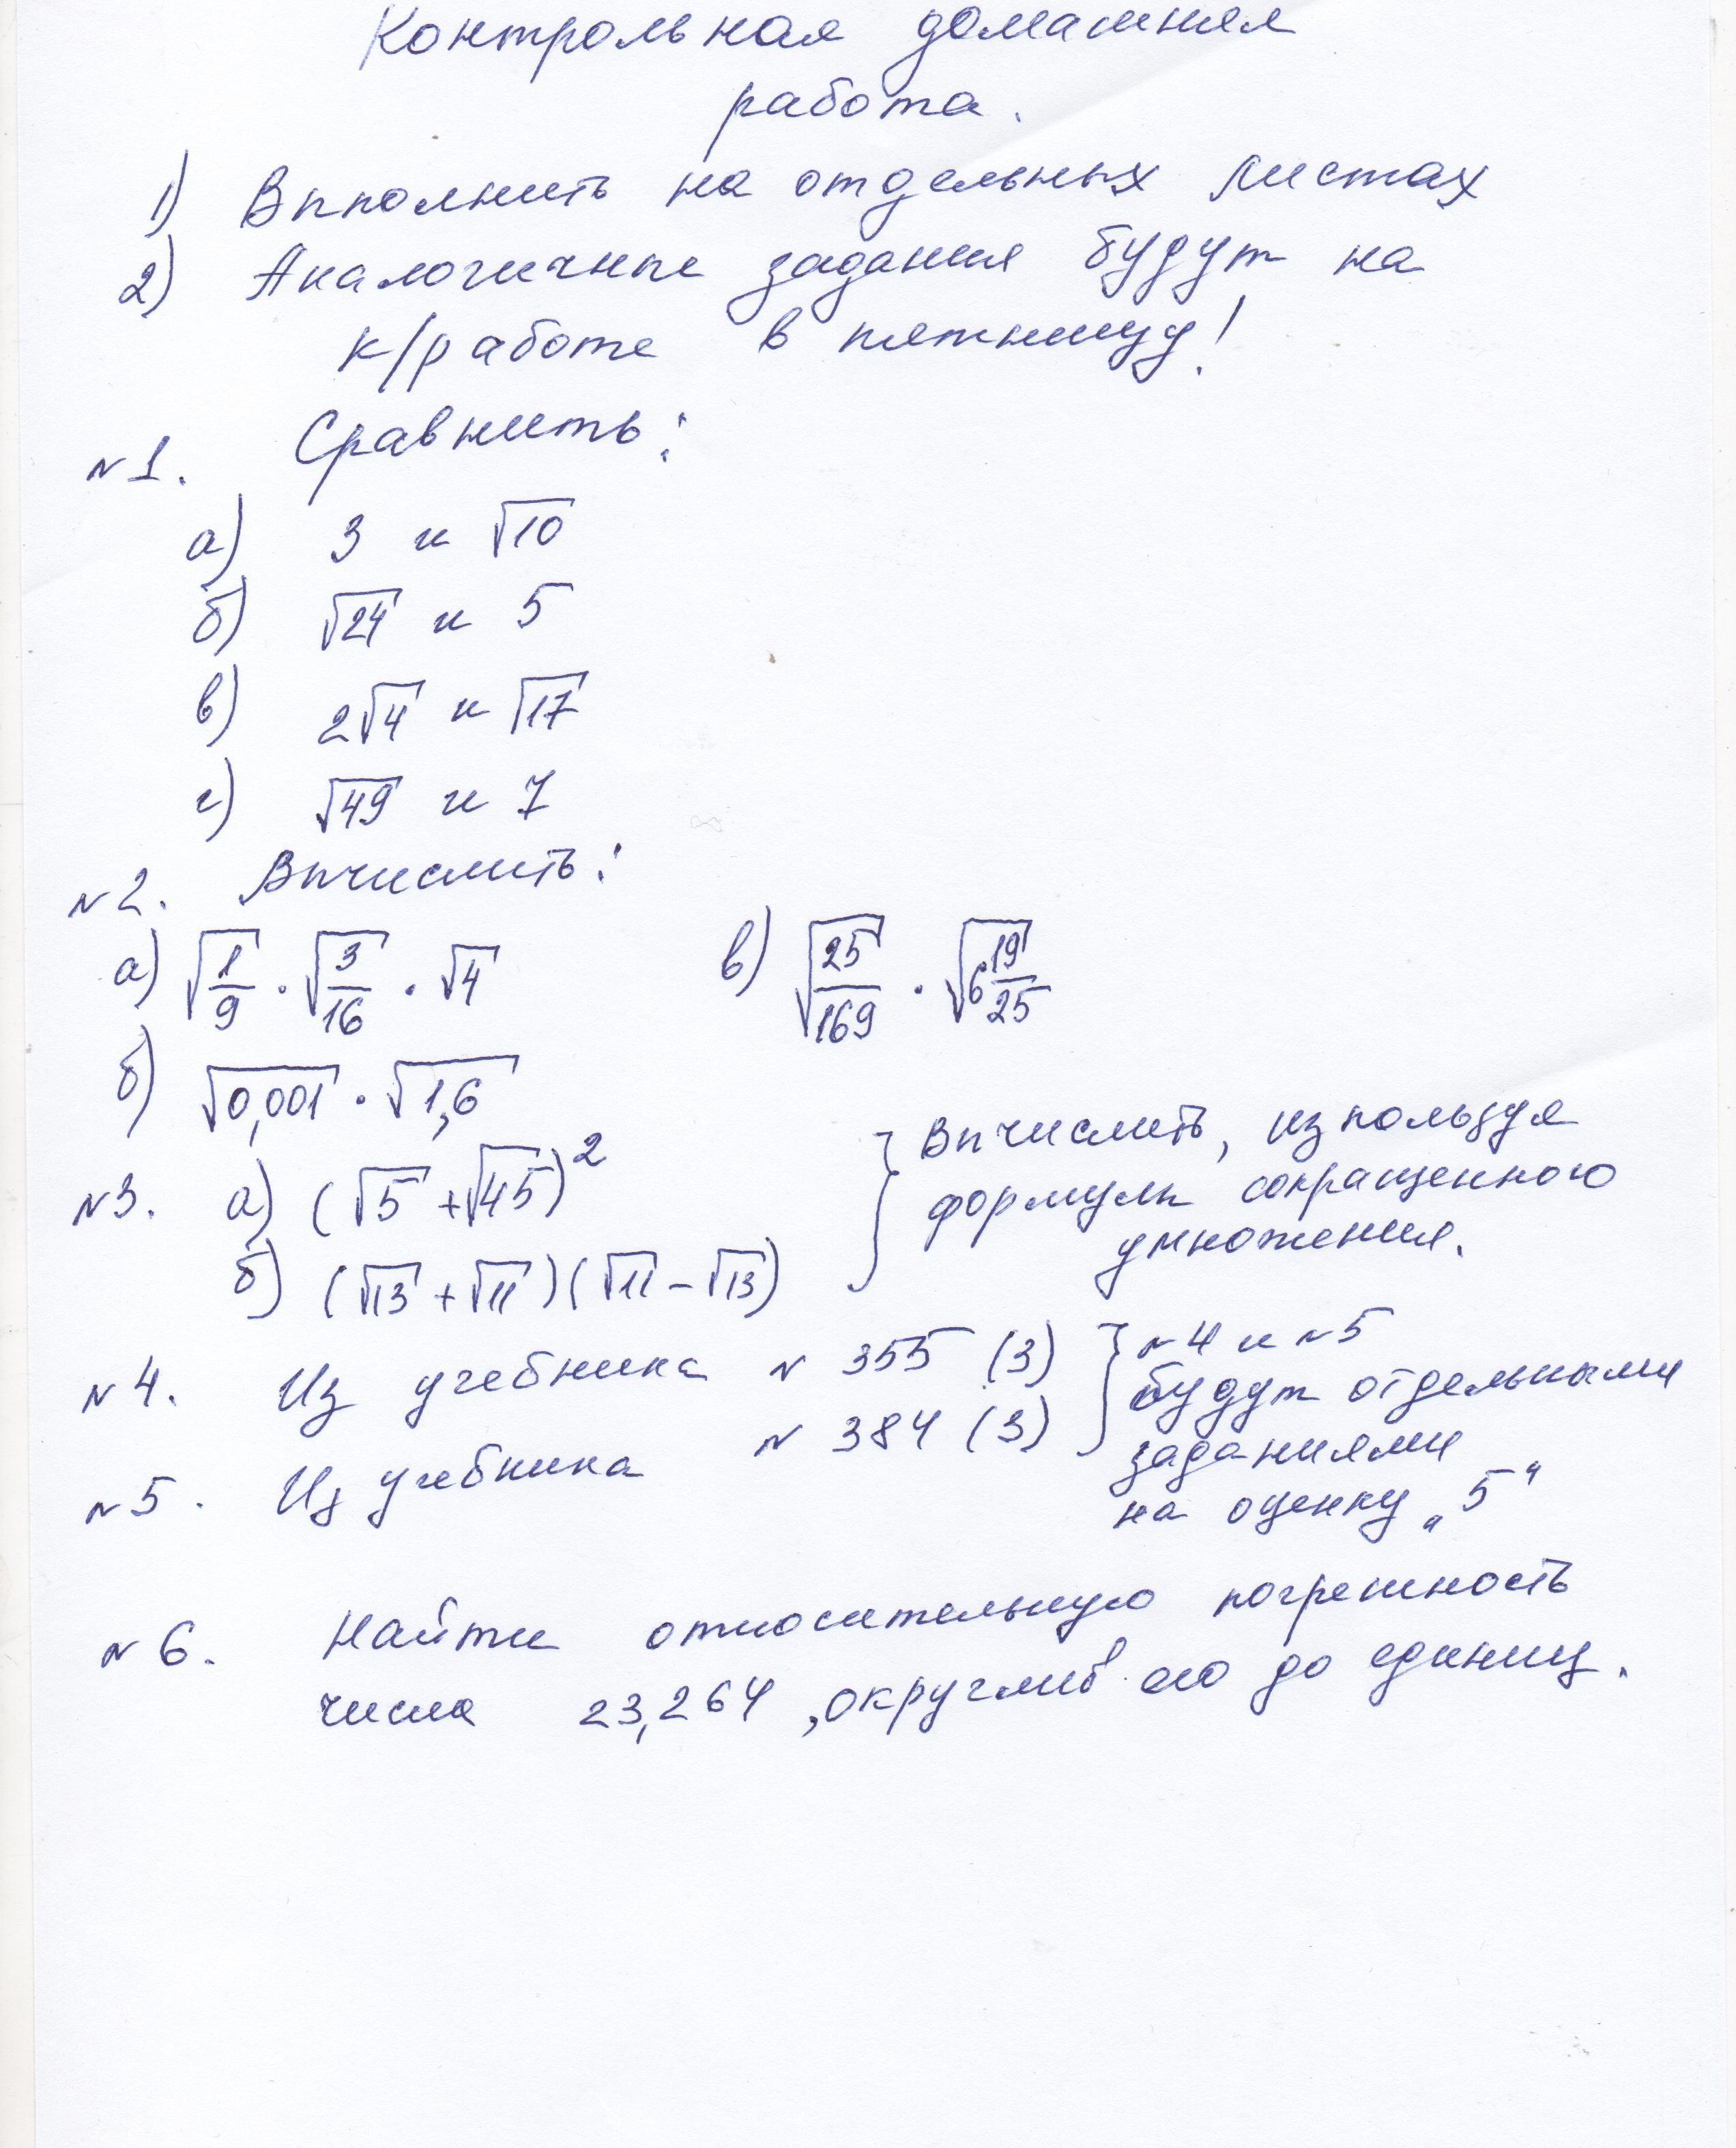 Контрольная домашняя
работа.
1) Выполнить на отдельных листах
2) Аналогичные задания будут на
к/работе в пятницу!
№1. Сравнить:
а) 3 и √10
б) √24 и 5
в) 2√4 и √17
г) √49 и 7
№2. Вычислить:
а) √(1/9) · √(3/16) · √4
в) √(25/169) · √(6 19/25)
б) √0,001 · √1,6
№3. а) (√5 + √45)²
б) (√13 + √11)(√11 − √13)
} Вычислить, изпользуя
формулы сокращенного
умножения.
№4. Из учебника № 355 (3)
№5. Из учебника № 384 (3)
} №4 и №5
будут отдельными
заданиями
на оценку „5“
№6. Найти относительную погрешность
числа 23,264, округлив его до единиц.